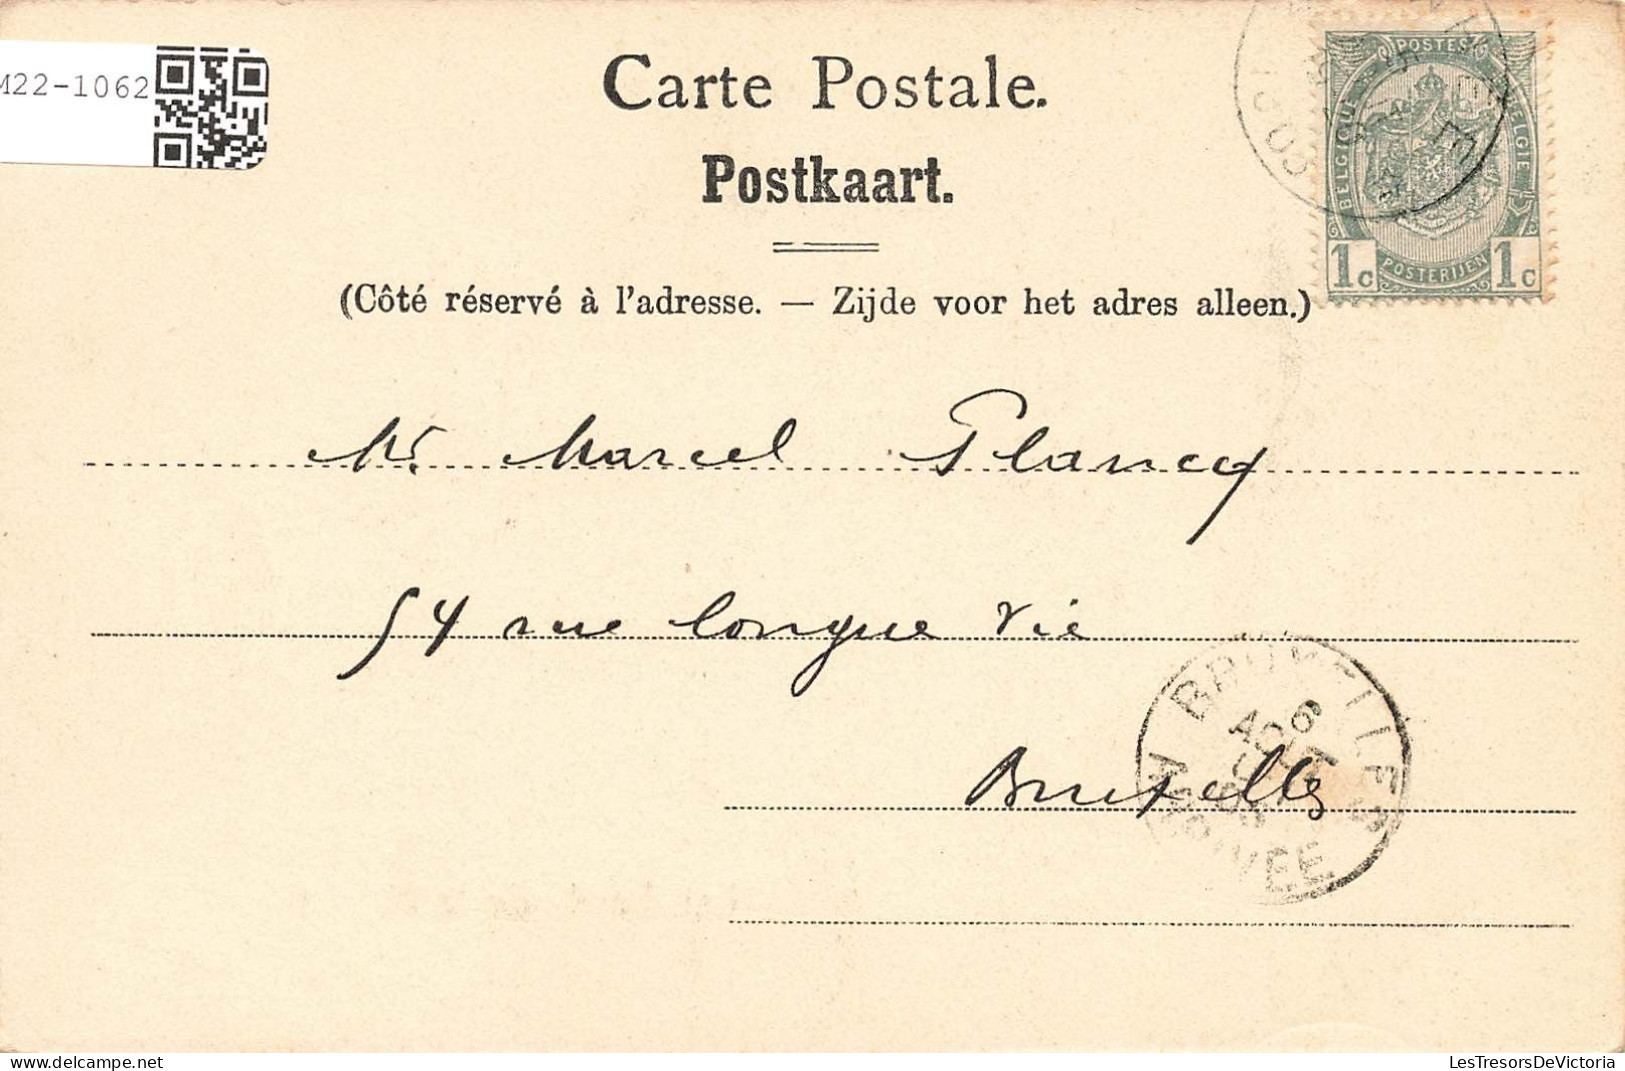 M22-1062
Carte Postale.
Postkaart.
(Côté réservé à l'adresse. — Zijde voor het adres alleen.)
POSTES
BELGIQUE
BELGIE
POSTERIJEN
1c 1c
Mr. Marcel Plancq
54 rue longue Vie
Bruxelles
BRUXELLES
6
AOUT
ARRIVEE
LesTresorsDeVictoria